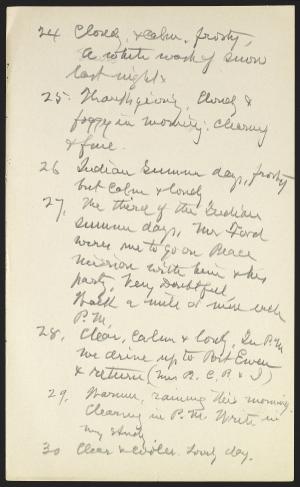 24 Cloudy, & calm, frosty,
a white wash of snow
last night.
25. Thanksgiving, cloudy &
foggy in morning: clearing
& fine.
26 Indian Summer days, frosty
but calm & lovely
27, The third of the Indian
summer days, Mr Ford
wires me to go on Peace
mission with him & his
party, Very doubtful
Walk a mile or more each
P.M.
28, Clear, calm & lovely, In P.M
we drive up to Port Ewen
& return (Mrs B. C. B. & I)
29, Warmer, raining this morning.
Clearing in P.M. Write in
my study
30 Clear & cooler. Lovely day.